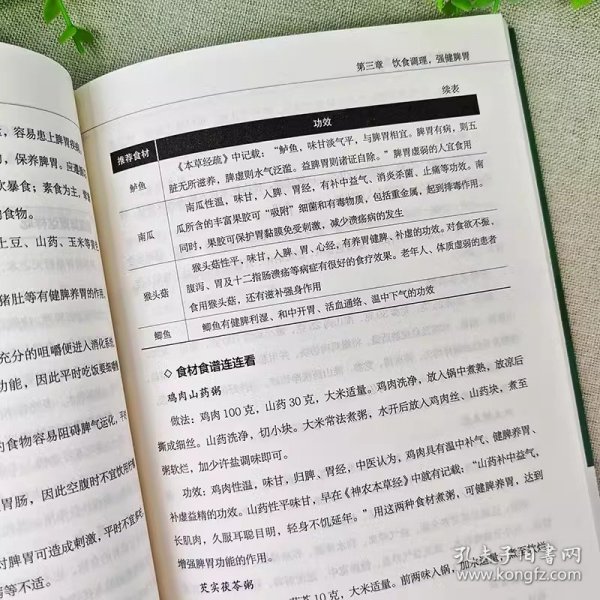 ，容易患上脾胃疾病
，保养脾胃。应遵循
饮暴食；素食为主，
的食物。
土豆、山药、玉米等黄色
猪肚等有健脾养胃的作用。
充分的咀嚼便进入消化系统
功能，因此平时吃饭要细嚼
的食物容易阻碍脾气运化，平
胃肠，因此空腹时不宜饮用
对脾胃可造成刺激，平时不宜多
等不适。
第三章 饮食调理，强健脾胃
续表
推荐食材 功效
鲈鱼
《本草经疏》中记载：“鲈鱼，味甘淡气平，与脾胃相宜。脾胃有病，则五
脏无所滋养，脾虚则水气泛滥。益脾胃则诸证自除。”脾胃虚弱的人宜食用
南瓜
南瓜性温，味甘，入脾、胃经，有补中益气、消炎杀菌、止痛等功效。南
瓜所含的丰富果胶可“吸附”细菌和有毒物质，包括重金属，起到排毒作用。
同时，果胶可保护胃黏膜免受刺激，减少溃疡病的发生
猴头菇
猴头菇性平，味甘，入脾、胃、心经，有养胃健脾、补虚的功效。对食欲不振，
腹泻、胃及十二指肠溃疡等病症有很好的食疗效果。老年人、体质虚弱的患者
食用猴头菇，还有滋补强身作用
鲫鱼 鲫鱼有健脾利湿、和中开胃、活血通络、温中下气的功效
◇ 食材食谱连连看
鸡肉山药粥
做法：鸡肉 100 克，山药 30 克，大米适量。鸡肉洗净，放入锅中煮熟，放凉后
撕成细丝。山药洗净，切小块。大米常法煮粥，水开后放入鸡肉丝、山药块，煮至
粥软烂，加少许盐调味即可。
功效：鸡肉性温，味甘，归脾、胃经，中医认为，鸡肉具有温中补气、健脾养胃、
补虚益精的功效。山药性平味甘，早在《神农本草经》中就有记载：“山药补中益气，
长肌肉，久服耳聪目明，轻身不饥延年。”用这两种食材煮粥，可健脾养胃，达到
增强脾胃功能的作用。
芡实茯苓粥
茯苓 10 克，大米适量。前两味入锅，加水适量
孔夫子旧书网
www.kongfz.com